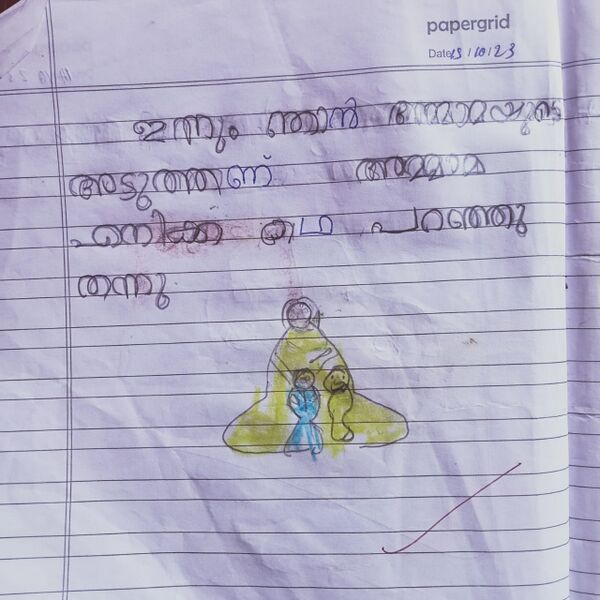 papergrid
Date 13/10/23
ഇന്നും ഞാൻ അമ്മാമയുടെ
അടുത്താണ് അമ്മാമ
എനിക്ക കഥ പറഞ്ഞു
തന്നു